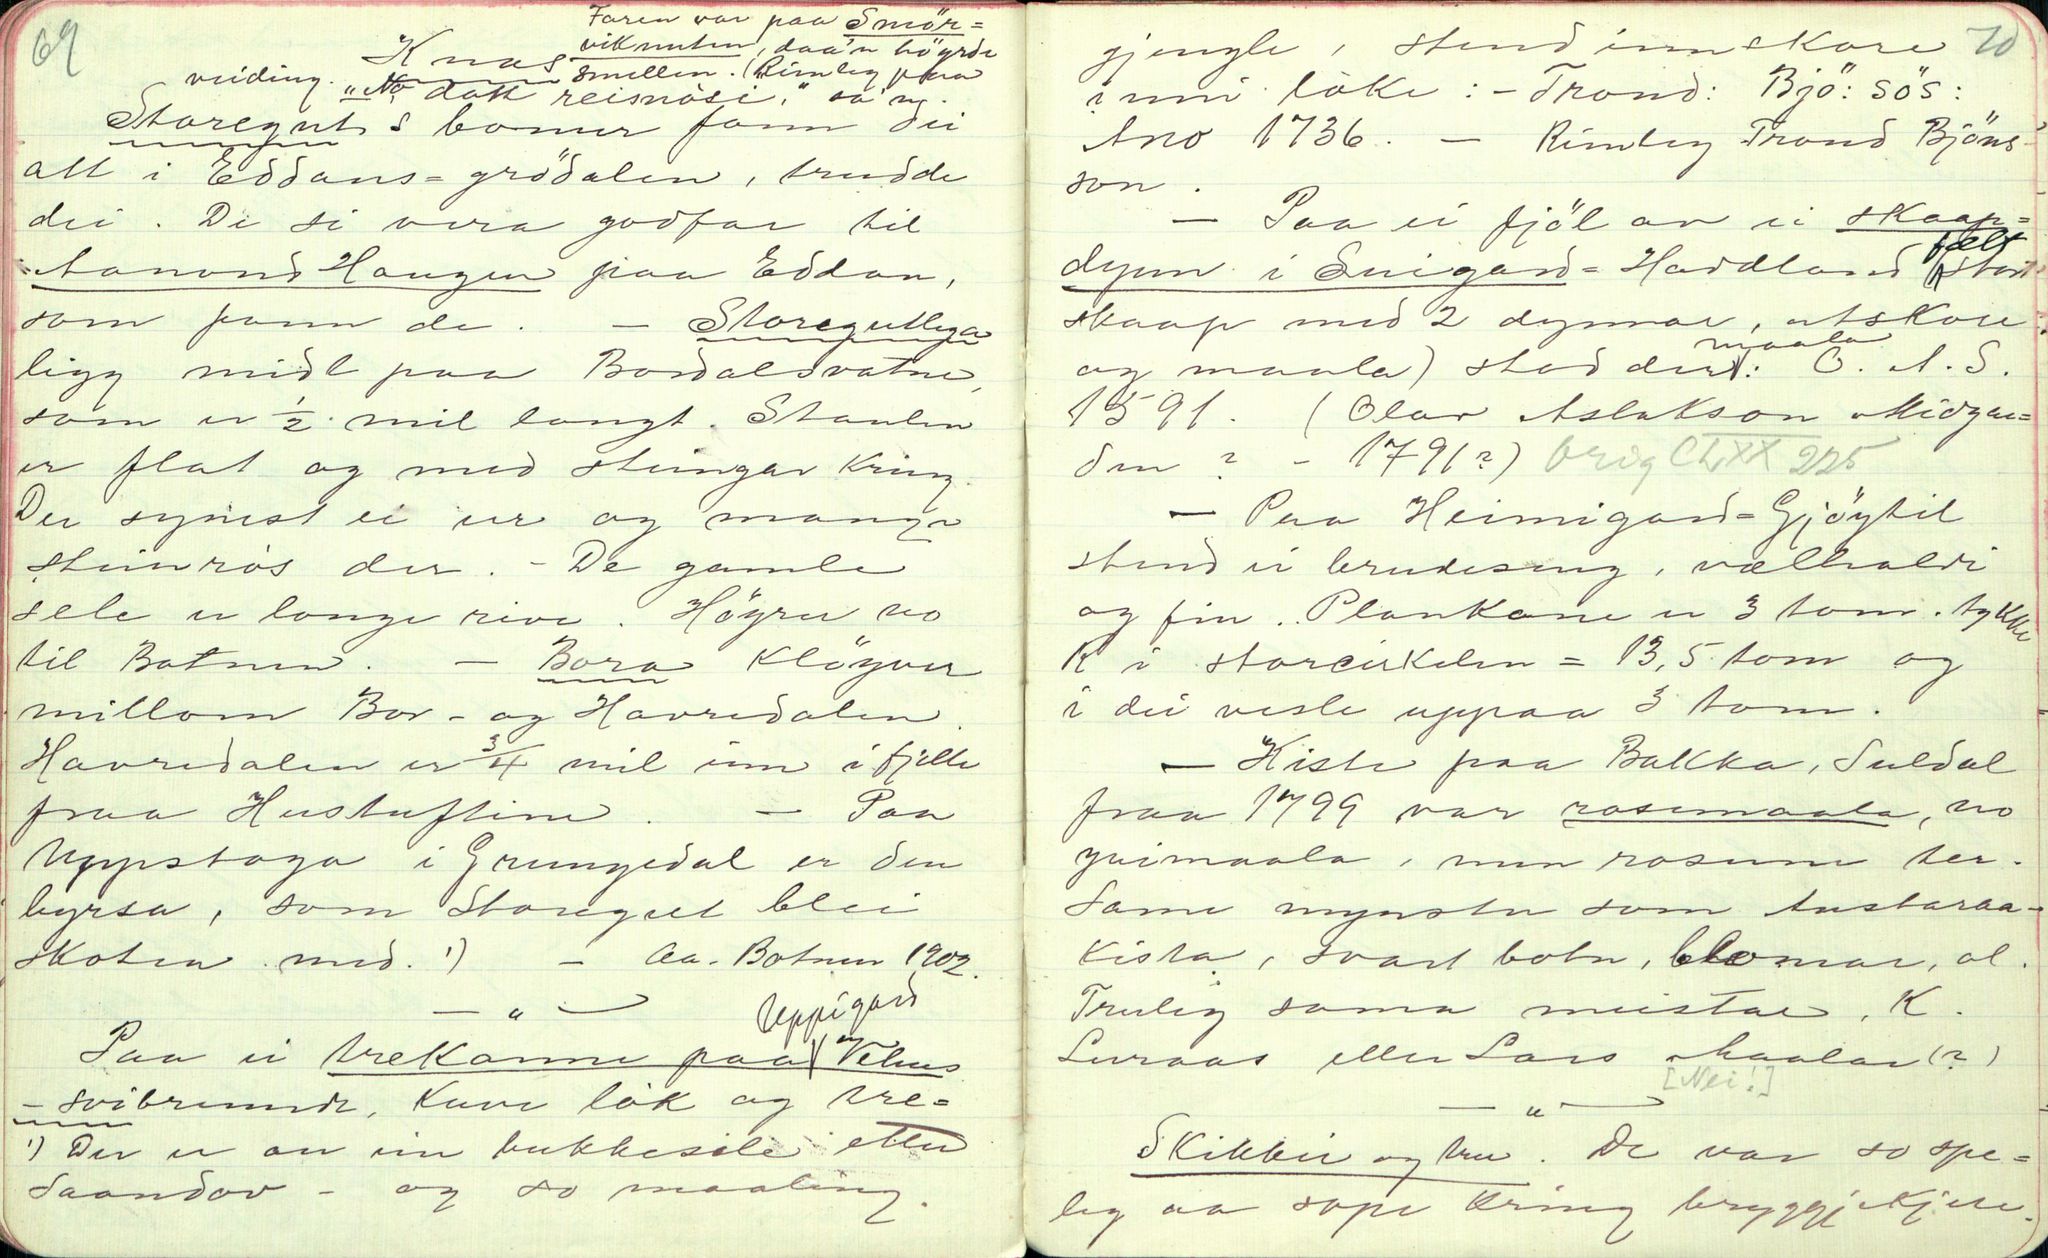 69
Faren var paa Smör=
Knas viknuten, daa'n höyrde
veiding. smellen. (Rimleg paa
"No datt reisnösi," sa'n.
Storegut s bonur fann dei
att i Eddans=grödalen, trudde
dei. De si vera godfar til
Aanond Haugen paa Eddan,
som fann de. — Storegutlega
ligg midt paa Bordalsvatne,
som er ½ mil langt. Staulen
er flat og med steingar kring.
Der synest ei ur og mange
steinrös der. - De gamle
sele er longe rive. Höyrer no
til Botnen. — Bora klöyver
millom Bor- og Havredalen.
Havredalen er 3/4 mil inn i fjelle
fraa Hustuftine. — Paa
Uppstoga i Grungedal er den
byrsa, som Storegut blei
skoten med. 1) — Aa. Botnen 1902.
— " —
Uppigard
Paa ei trekanne paa Vehus
- svibrennde, kuve lok og tre=
1) Der er au ein bukkesele etter
Saandov - og so maaling.
70
gjengle, stend innskore
inni loke: - Trond: Bjö: sös:
Ano 1736. — Rimleg Trond Bjöns-
son.
— Paa ei fjöl av ei skaap=
dynn i Suigard=Haddland (fælt stort
skaap med 2 dynnar, utskore
og maala) stod der maala: O. A. S.
1591. (Olav Aslakson Midgar=
den? - 1791?) Orig CLXX 225
— Paa Heimigard=Gjöytil
stend ei brudeseng, vælhaldi
og fin. Plankane er 3 tom. tykke
R i storcirkelen = 13,5 tom og
i dei vesle uppaa 3 tom.
— Kiste paa Bakka, Suldal
fraa 1799 var rosemaala, no
yvimaala, men rosune ter.
Same mynster som Austaraa-
kista, svart botn, blomar, al.
Truleg sama meistar, K.
Luraas eller Lars Maalar (?)
[Nei!]
— " —
Skikkir og tru. De var so spe=
leg aa sope kring bryggjekjere.